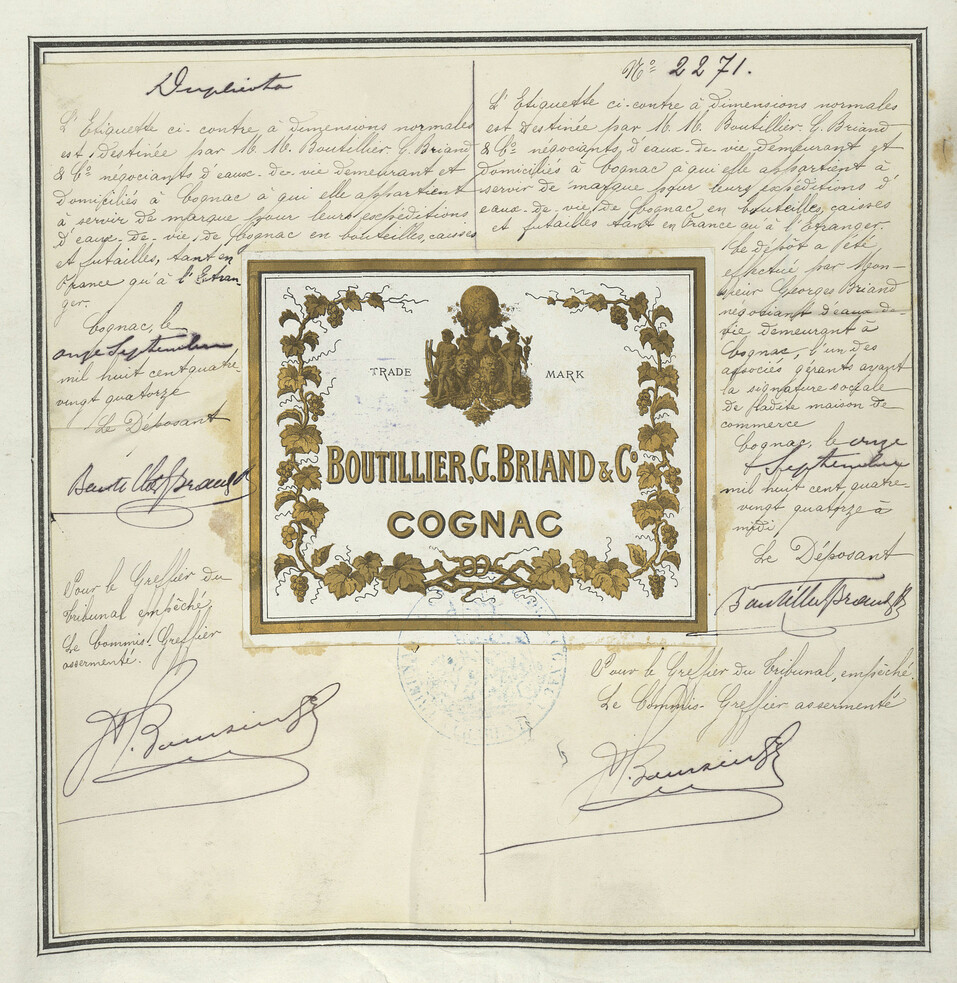 Duplicata
L'Etiquette ci-contre à dimensions normales
est destinée par M.M. Boutillier, G. Briand
& Cº négociants d'eaux-de-vie demeurant et
domiciliés à Cognac à qui elle appartient
à servir de marque pour leurs expéditions
d'eaux-de-vie, de Cognac en bouteilles, caisses
et futailles, tant en
France qu'à l'Etran
ger.
Cognac, le
onze Septembre
mil huit cent quatre
vingt quatorze
Le Déposant
Boutillier G Briand & Cº
Pour le Greffier du
Tribunal empêché
Le Commis. Greffier
assermenté.
Nº 2271.
L'Etiquette ci-contre à dimensions normales
est destinée par M.M. Boutillier G. Briand
& Cº négociants d'eaux-de-vie demeurant et
domiciliés à Cognac à qui elle appartient à
servir de marque pour leurs expéditions d'
eaux-de-vie, de Cognac en bouteilles, caisses
et futailles tant en France qu'à l'étranger.
Le dépôt a été
effectué par Mon-
sieur Georges Briand
négociant d'eaux-de-
vie demeurant à
Cognac, l'un des
associés gérants ayant
la signature sociale
de ladite maison de
commerce
Cognac, le onze
Septembre
mil huit cent quatre-
vingt quatorze à
midi
Le Déposant
Boutillier G Briand & Cº
Pour le Greffier du Tribunal, empêché
Le Commis-Greffier assermenté
TRADE MARK
BOUTILLIER, G. BRIAND & Cº
COGNAC